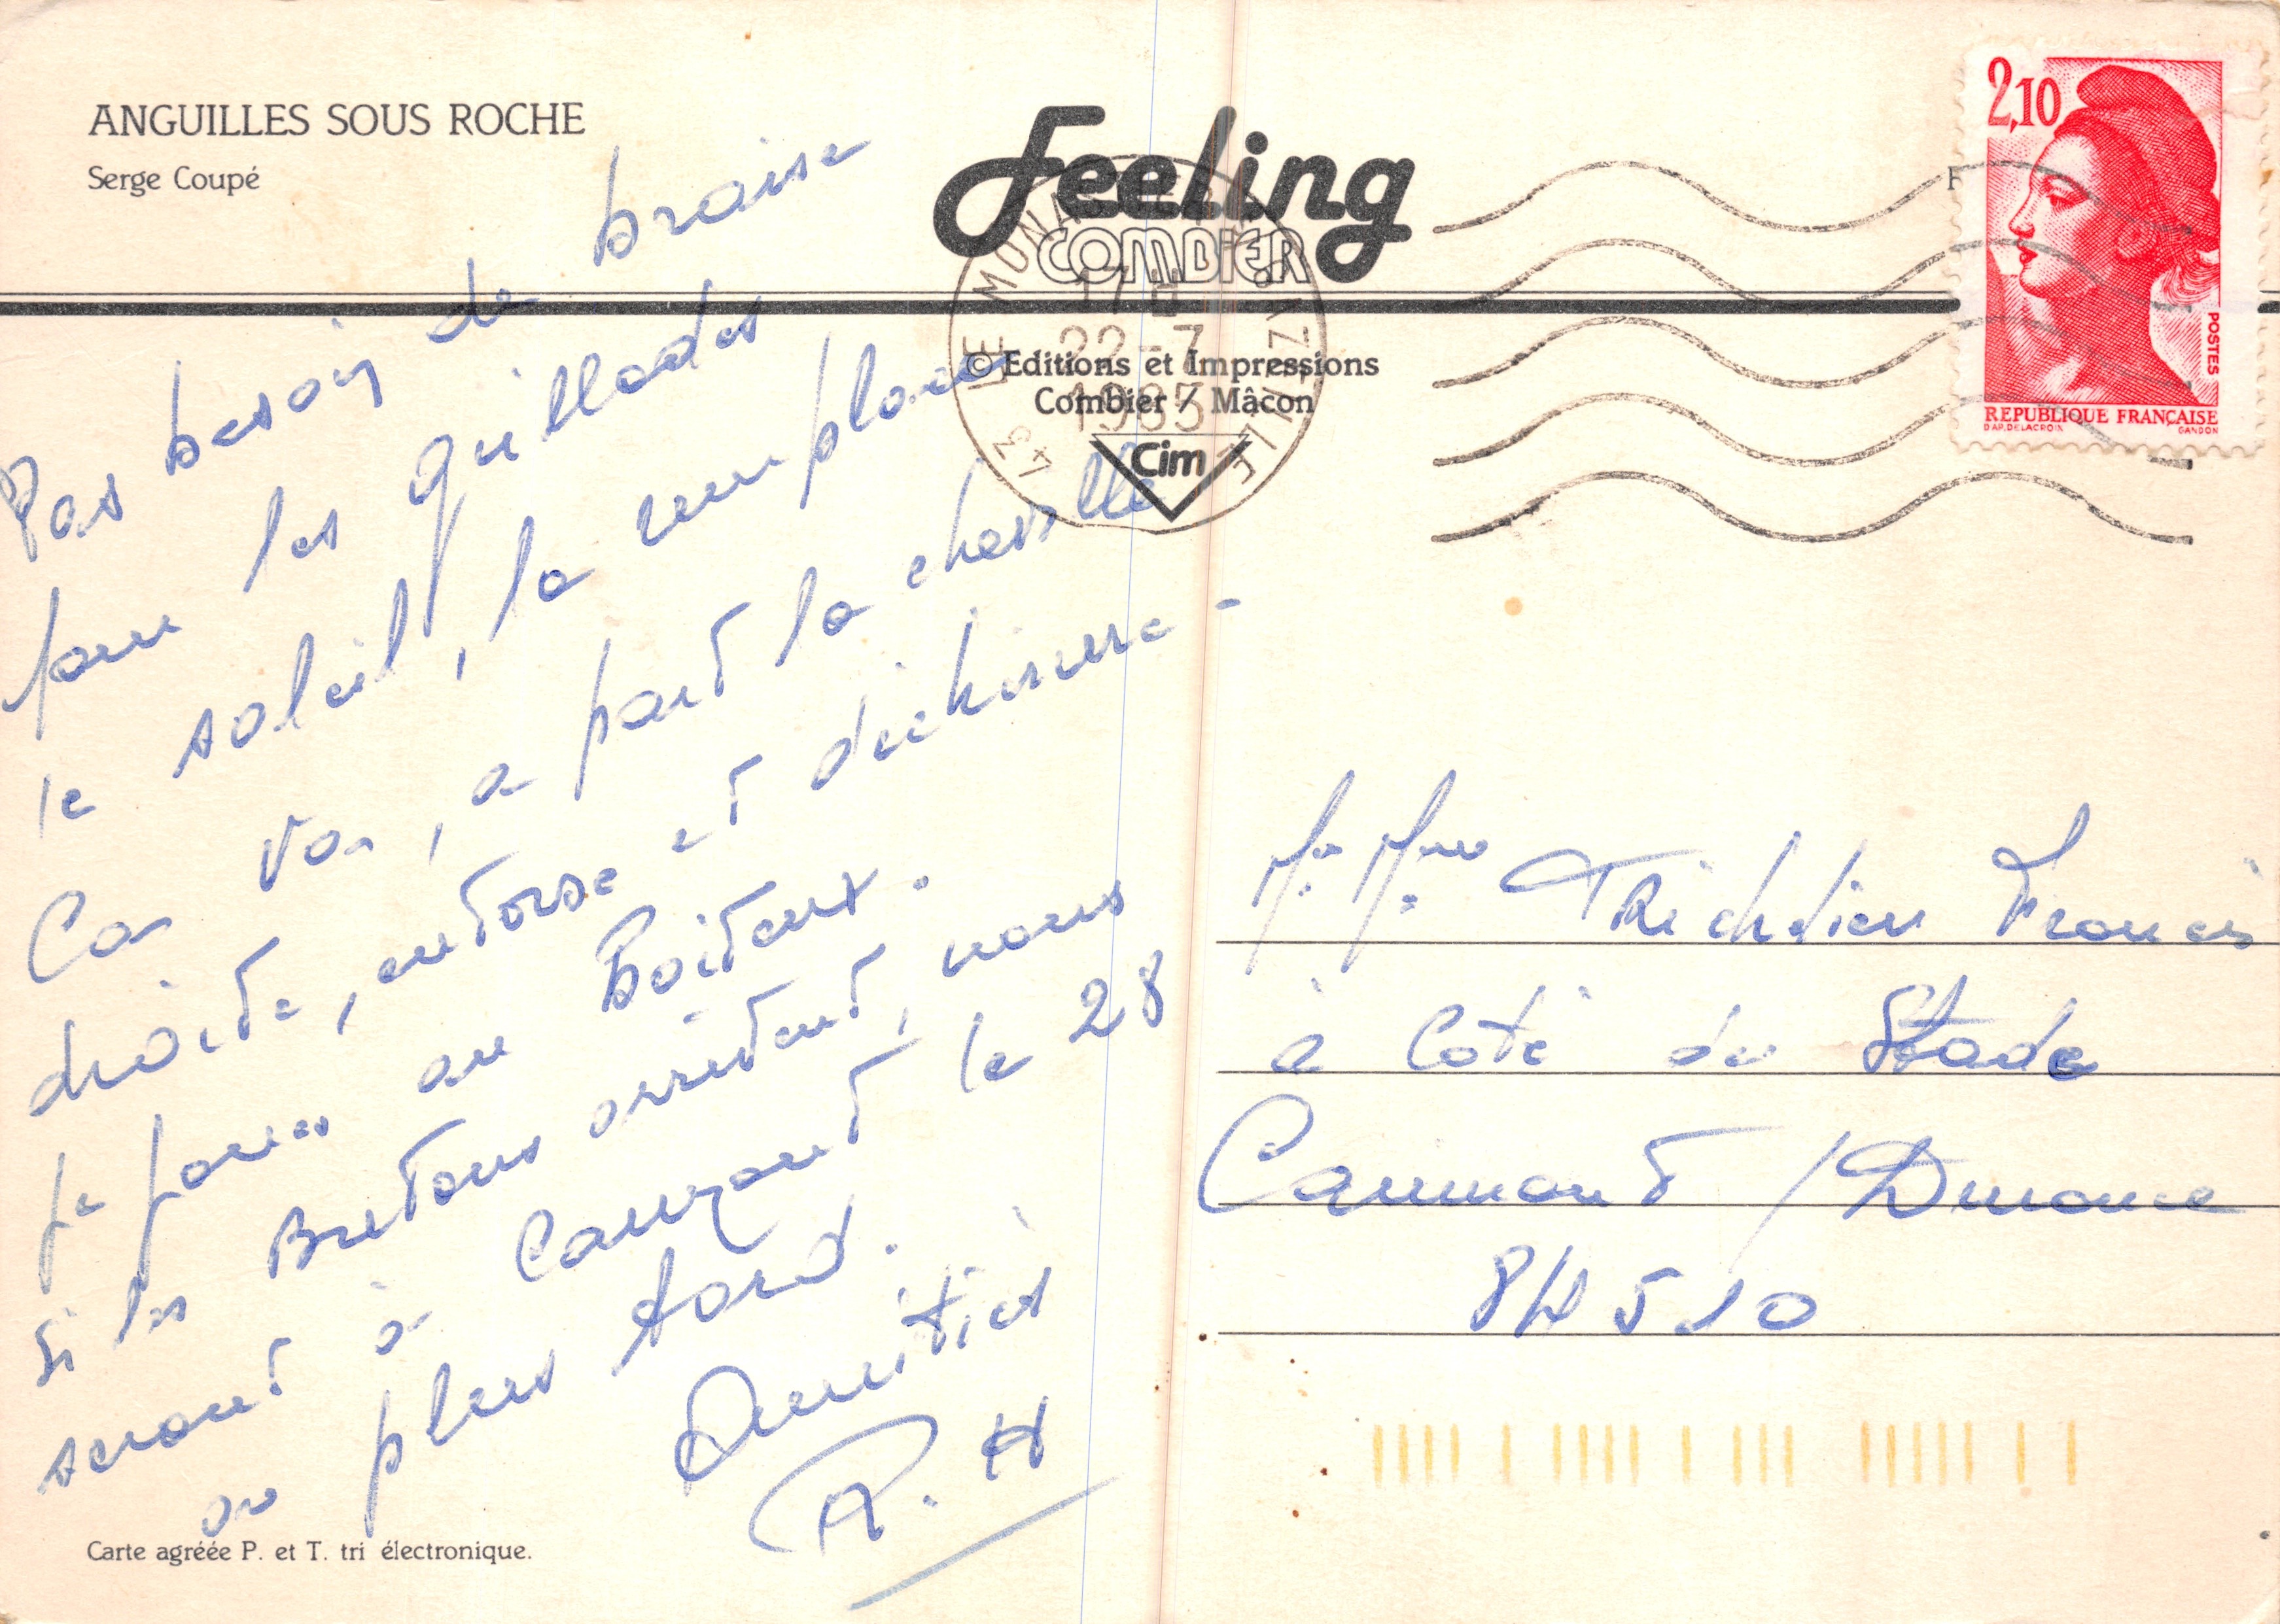 ANGUILLES SOUS ROCHE
Serge Coupé
Feeling
COMBIER
© Editions et Impressions
Combier / Mâcon
Cim
LE MONASTIER
17 H
22-7
1985
43
2,10
POSTES
REPUBLIQUE FRANÇAISE
D'AP. DELACROIX
GANDON
F
Pas besoin de braise
pour les grillades
le soleil, la remplace
Ca va, a part la cheville
droite, entorse et déchirure -
je joues au Boiteux.
Si les Bretons arrivent, nous
seront à le 28
ou plus tard.
Amitiés
R. H
Mr. Mme Richdieu Francis
à Coté du Stade
Caumont / Durance
84510
Carte agréée P. et T. tri électronique.